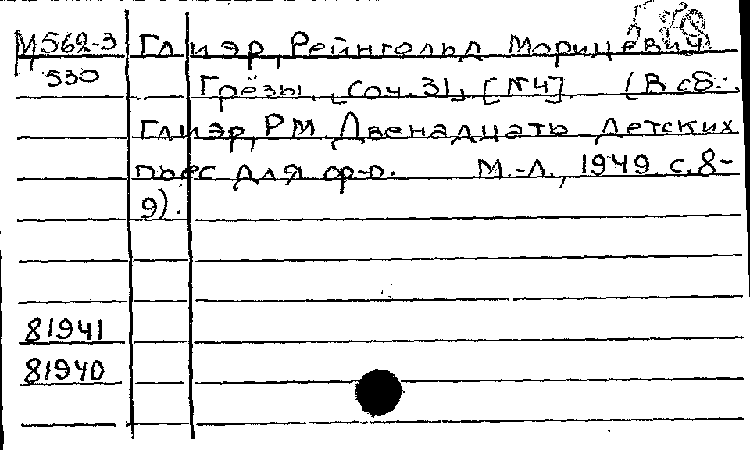 М562-3 Глиэр, Рейнгольд Морицевич
530 Грёзы. [Соч. 31], [№4]. (В сб.:
Глиэр, Р.М. Двенадцать детских
пьес для ф-п. М.-Л., 1949 с. 8-
9).
81941
81940